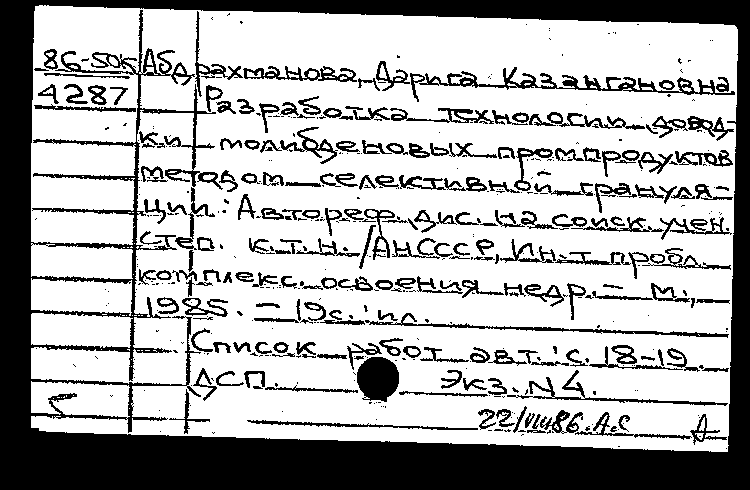 86-50к Абдрахманова, Дарига Казангановна
4287 Разработка технологии довод-
ки молибденовых промпродуктов
методом селективной грануля-
ции: Автореф. дис. на соиск. учен.
степ. к.т.н. /АНСССР, Ин-т пробл.
комплекс. освоения недр. – М.,
1985. – 19с.: ил.
Список работ авт.: с. 18-19.
ДСП. Экз. N 4.
22/VIII86. А.С А